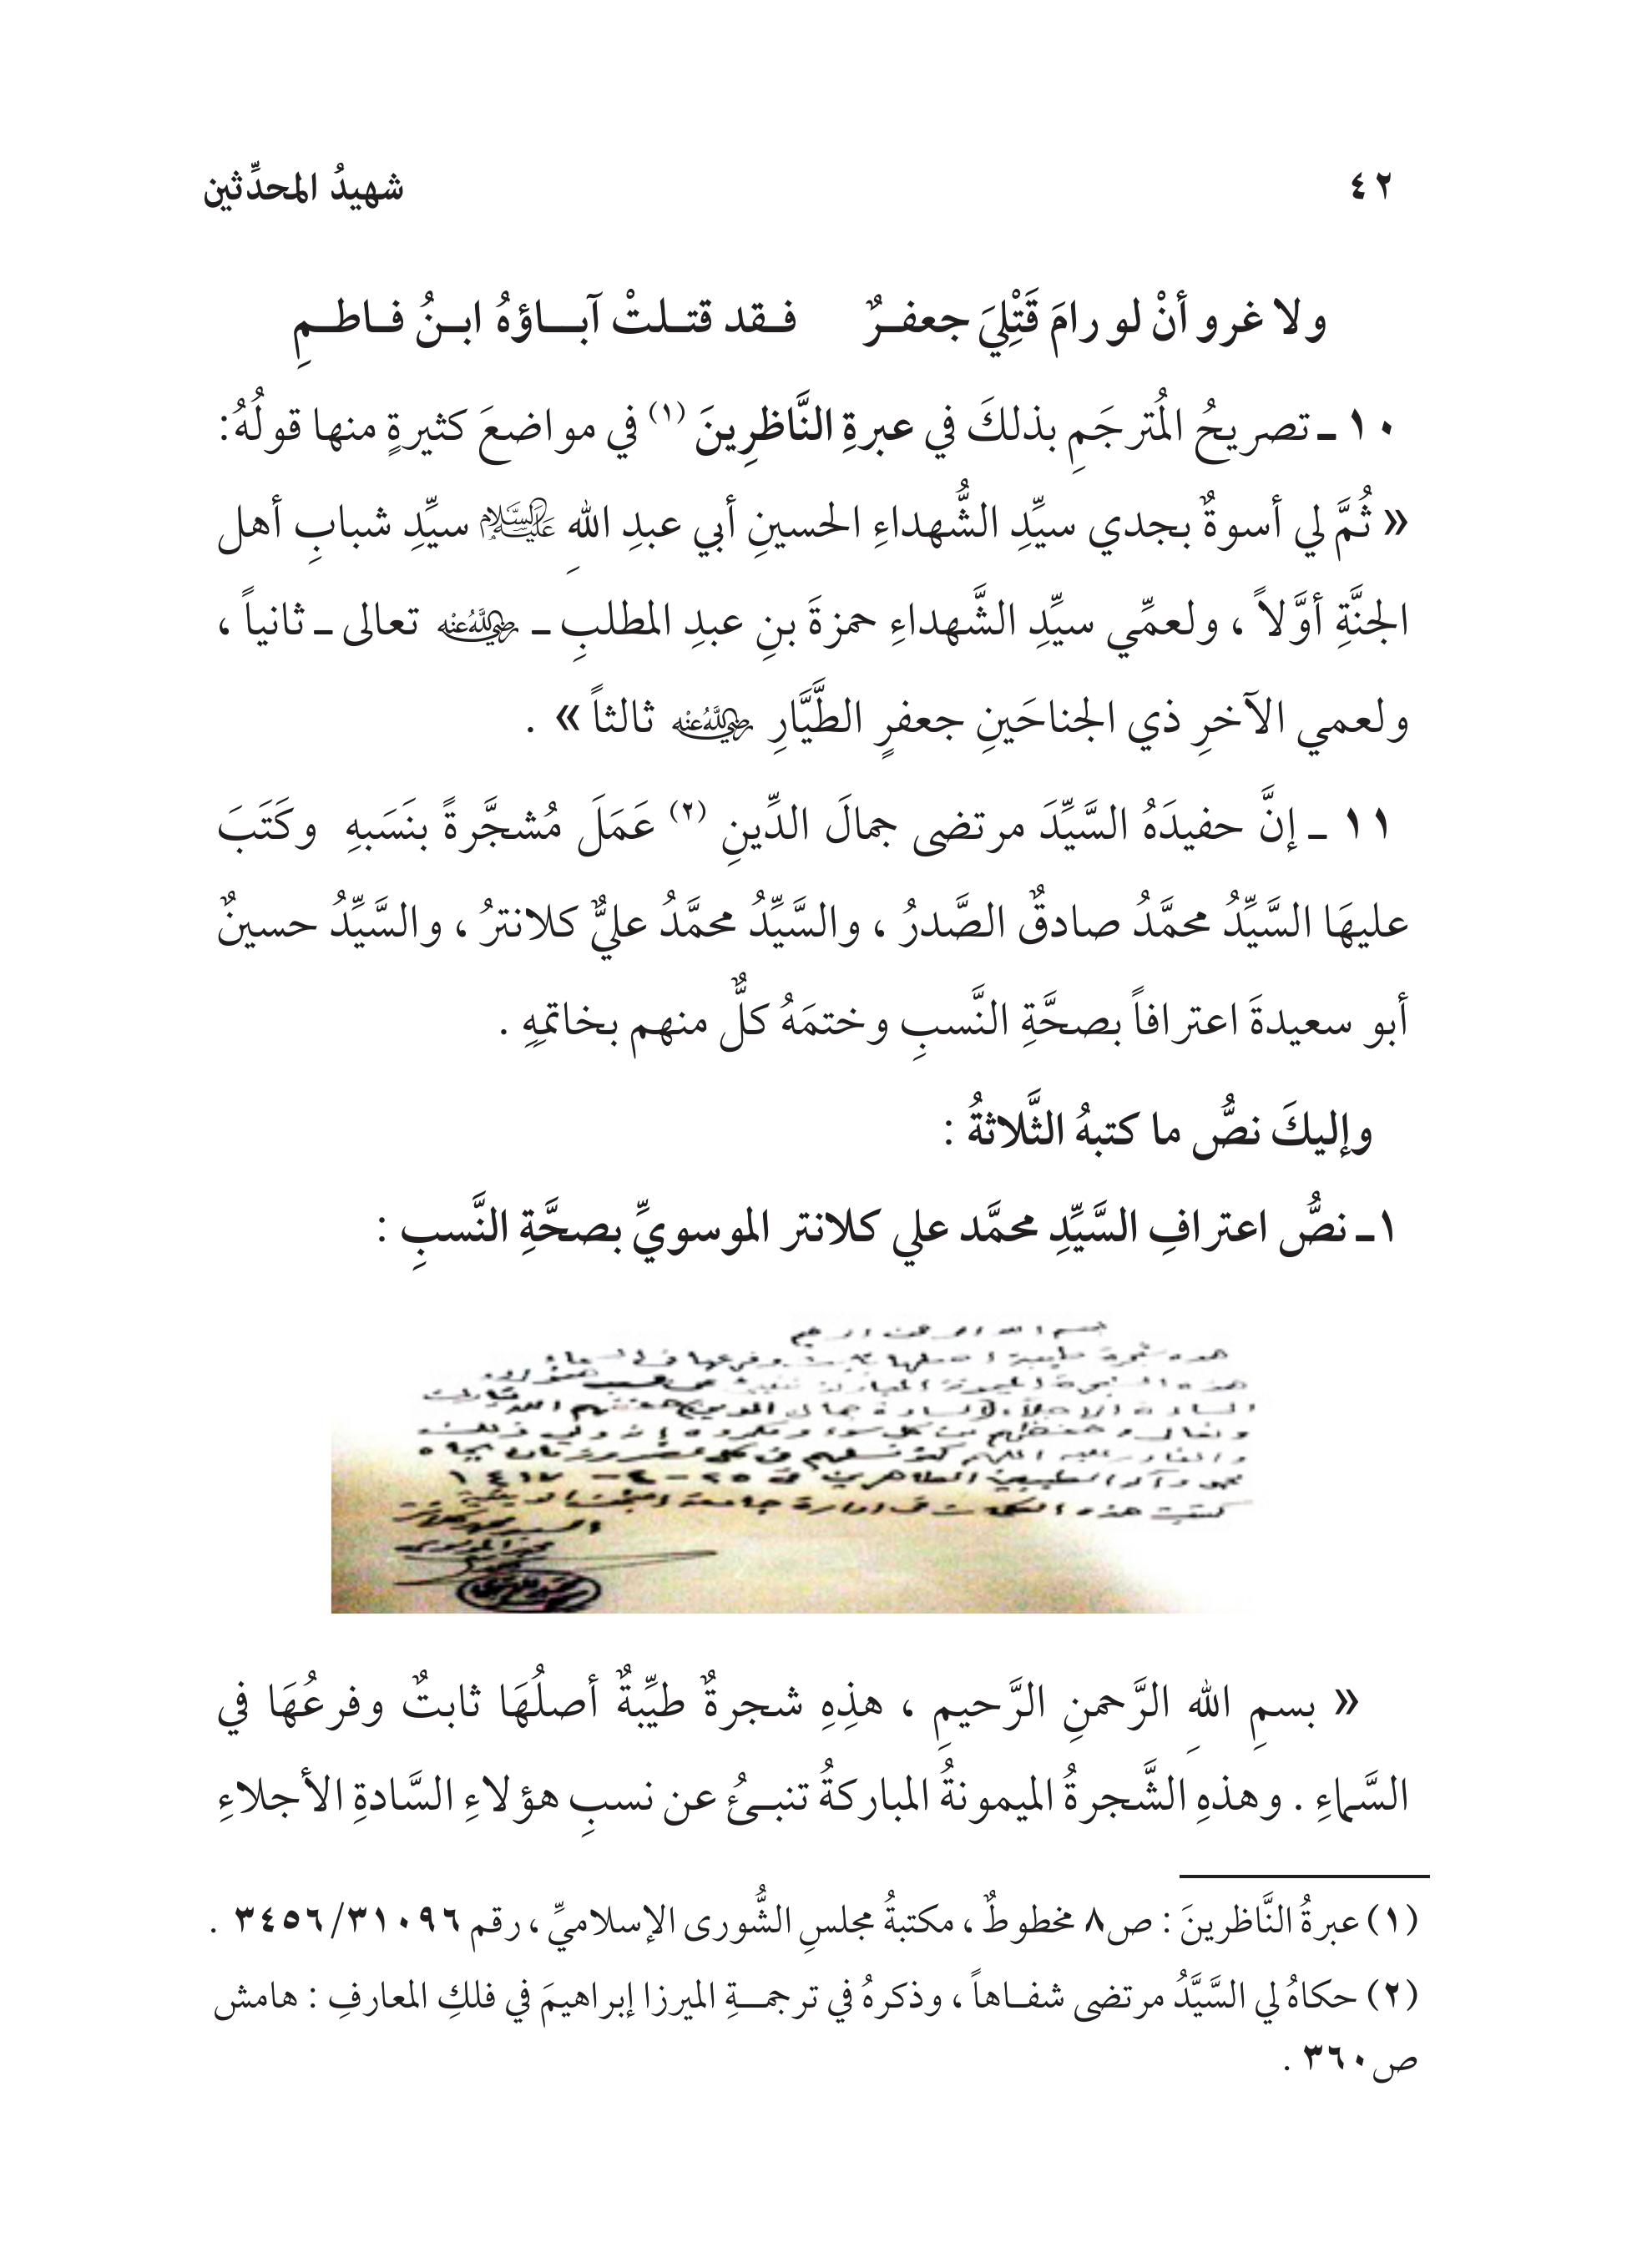 ٤٢ شهيدُ المحدِّثين
ولا غرو أنْ لو رامَ قَتْلِيَ جعفـرٌ فـقد قتـلتْ آبـــاؤهُ ابـنُ فـاطـمِ
١٠ ـ تصريحُ المُترجَمِ بذلكَ في عبرةِ النَّاظرِينَ (١) في مواضعَ كثيرةٍ منها قولُهُ:
« ثُمَّ لي أسوةٌ بجدي سيِّدِ الشُّهداءِ الحسينِ أبي عبدِ اللهِ عَلَيْهِ السَّلَام سيِّدِ شبابِ أهل
الجنَّةِ أوَّلاً ، ولعمِّي سيِّدِ الشَّهداءِ حمزةَ بنِ عبدِ المطلبِ ـ رضي الله عنه تعالى ـ ثانياً ،
ولعمي الآخرِ ذي الجناحَينِ جعفرٍ الطَّيَّارِ رضي الله عنه ثالثاً » .
١١ ـ إنَّ حفيدَهُ السَّيِّدَ مرتضى جمالَ الدِّينِ (٢) عَمَلَ مُشجَّرةً بنَسَبهِ وكَتَبَ
عليهَا السَّيِّدُ محمَّدُ صادقٌ الصَّدرُ ، والسَّيِّدُ محمَّدُ عليٌّ كلانترُ ، والسَّيِّدُ حسينٌ
أبو سعيدةَ اعترافاً بصحَّةِ النَّسبِ وختمَهُ كلٌّ منهم بخاتمِهِ .
وإليكَ نصُّ ما كتبهُ الثَّلاثةُ :
١ـ نصُّ اعترافِ السَّيِّدِ محمَّد علي كلانتر الموسويِّ بصحَّةِ النَّسبِ :
« بسمِ اللهِ الرَّحمنِ الرَّحيمِ ، هذِهِ شجرةٌ طيِّبةٌ أصلُهَا ثابتٌ وفرعُهَا في
السَّماءِ . وهذهِ الشَّجرةُ الميمونةُ المباركةُ تنبـئُ عن نسبِ هؤلاءِ السَّادةِ الأجلاءِ
(١) عبرةُ النَّاظرينَ : ص٨ مخطوطٌ ، مكتبةُ مجلسِ الشُّورى الإسلاميِّ ، رقم ٣٤٥٦/٣١٠٩٦ .
(٢) حكاهُ لي السَّيَّدُ مرتضى شفـاهاً ، وذكرهُ في ترجمـــةِ الميرزا إبراهيمَ في فلكِ المعارفِ : هامش
ص٣٦٠ .